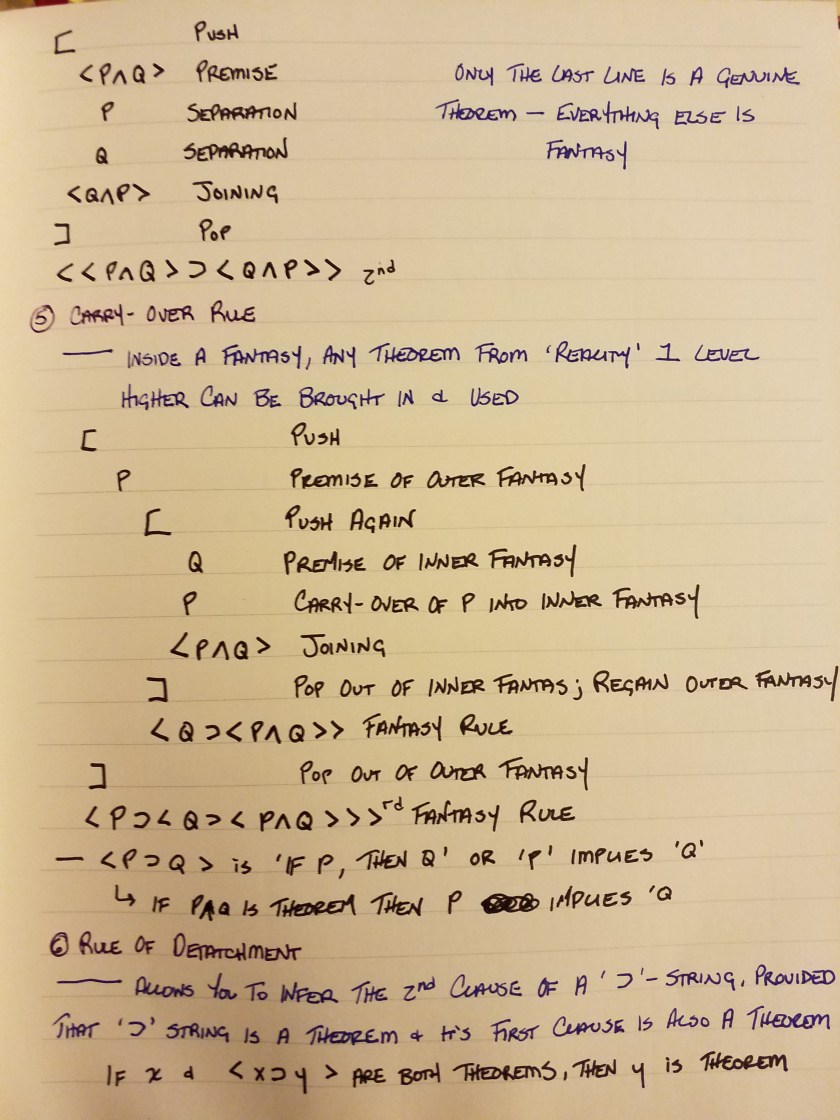 [ PUSH
<P∧Q> PREMISE ONLY THE LAST LINE IS A GENUINE
P SEPARATION THEOREM — EVERYTHING ELSE IS
Q SEPARATION FANTASY
<Q∧P> JOINING
] POP
<<P∧Q>⊃<Q∧P>> 2nd
⑤ CARRY-OVER RULE
— INSIDE A FANTASY, ANY THEOREM FROM 'REALITY' 1 LEVEL
HIGHER CAN BE BROUGHT IN & USED
[ PUSH
P PREMISE OF OUTER FANTASY
[ PUSH AGAIN
Q PREMISE OF INNER FANTASY
P CARRY-OVER OF P INTO INNER FANTASY
<P∧Q> JOINING
] POP OUT OF INNER FANTAS; REGAIN OUTER FANTASY
<Q⊃<P∧Q>> FANTASY RULE
] POP OUT OF OUTER FANTASY
<P⊃<Q⊃<P∧Q>>> rd FANTASY RULE
— <P⊃Q> IS 'IF P, THEN Q' OR 'P' IMPLIES 'Q'
↳ IF P∧Q IS THEOREM THEN P IMPLIES 'Q
⑥ RULE OF DETATCHMENT
— ALLOWS YOU TO INFER THE 2nd CLAUSE OF A '⊃'-STRING, PROVIDED
THAT '⊃' STRING IS A THEOREM & IT'S FIRST CLAUSE IS ALSO A THEOREM
IF x & <x⊃y> ARE BOTH THEOREMS, THEN y IS THEOREM